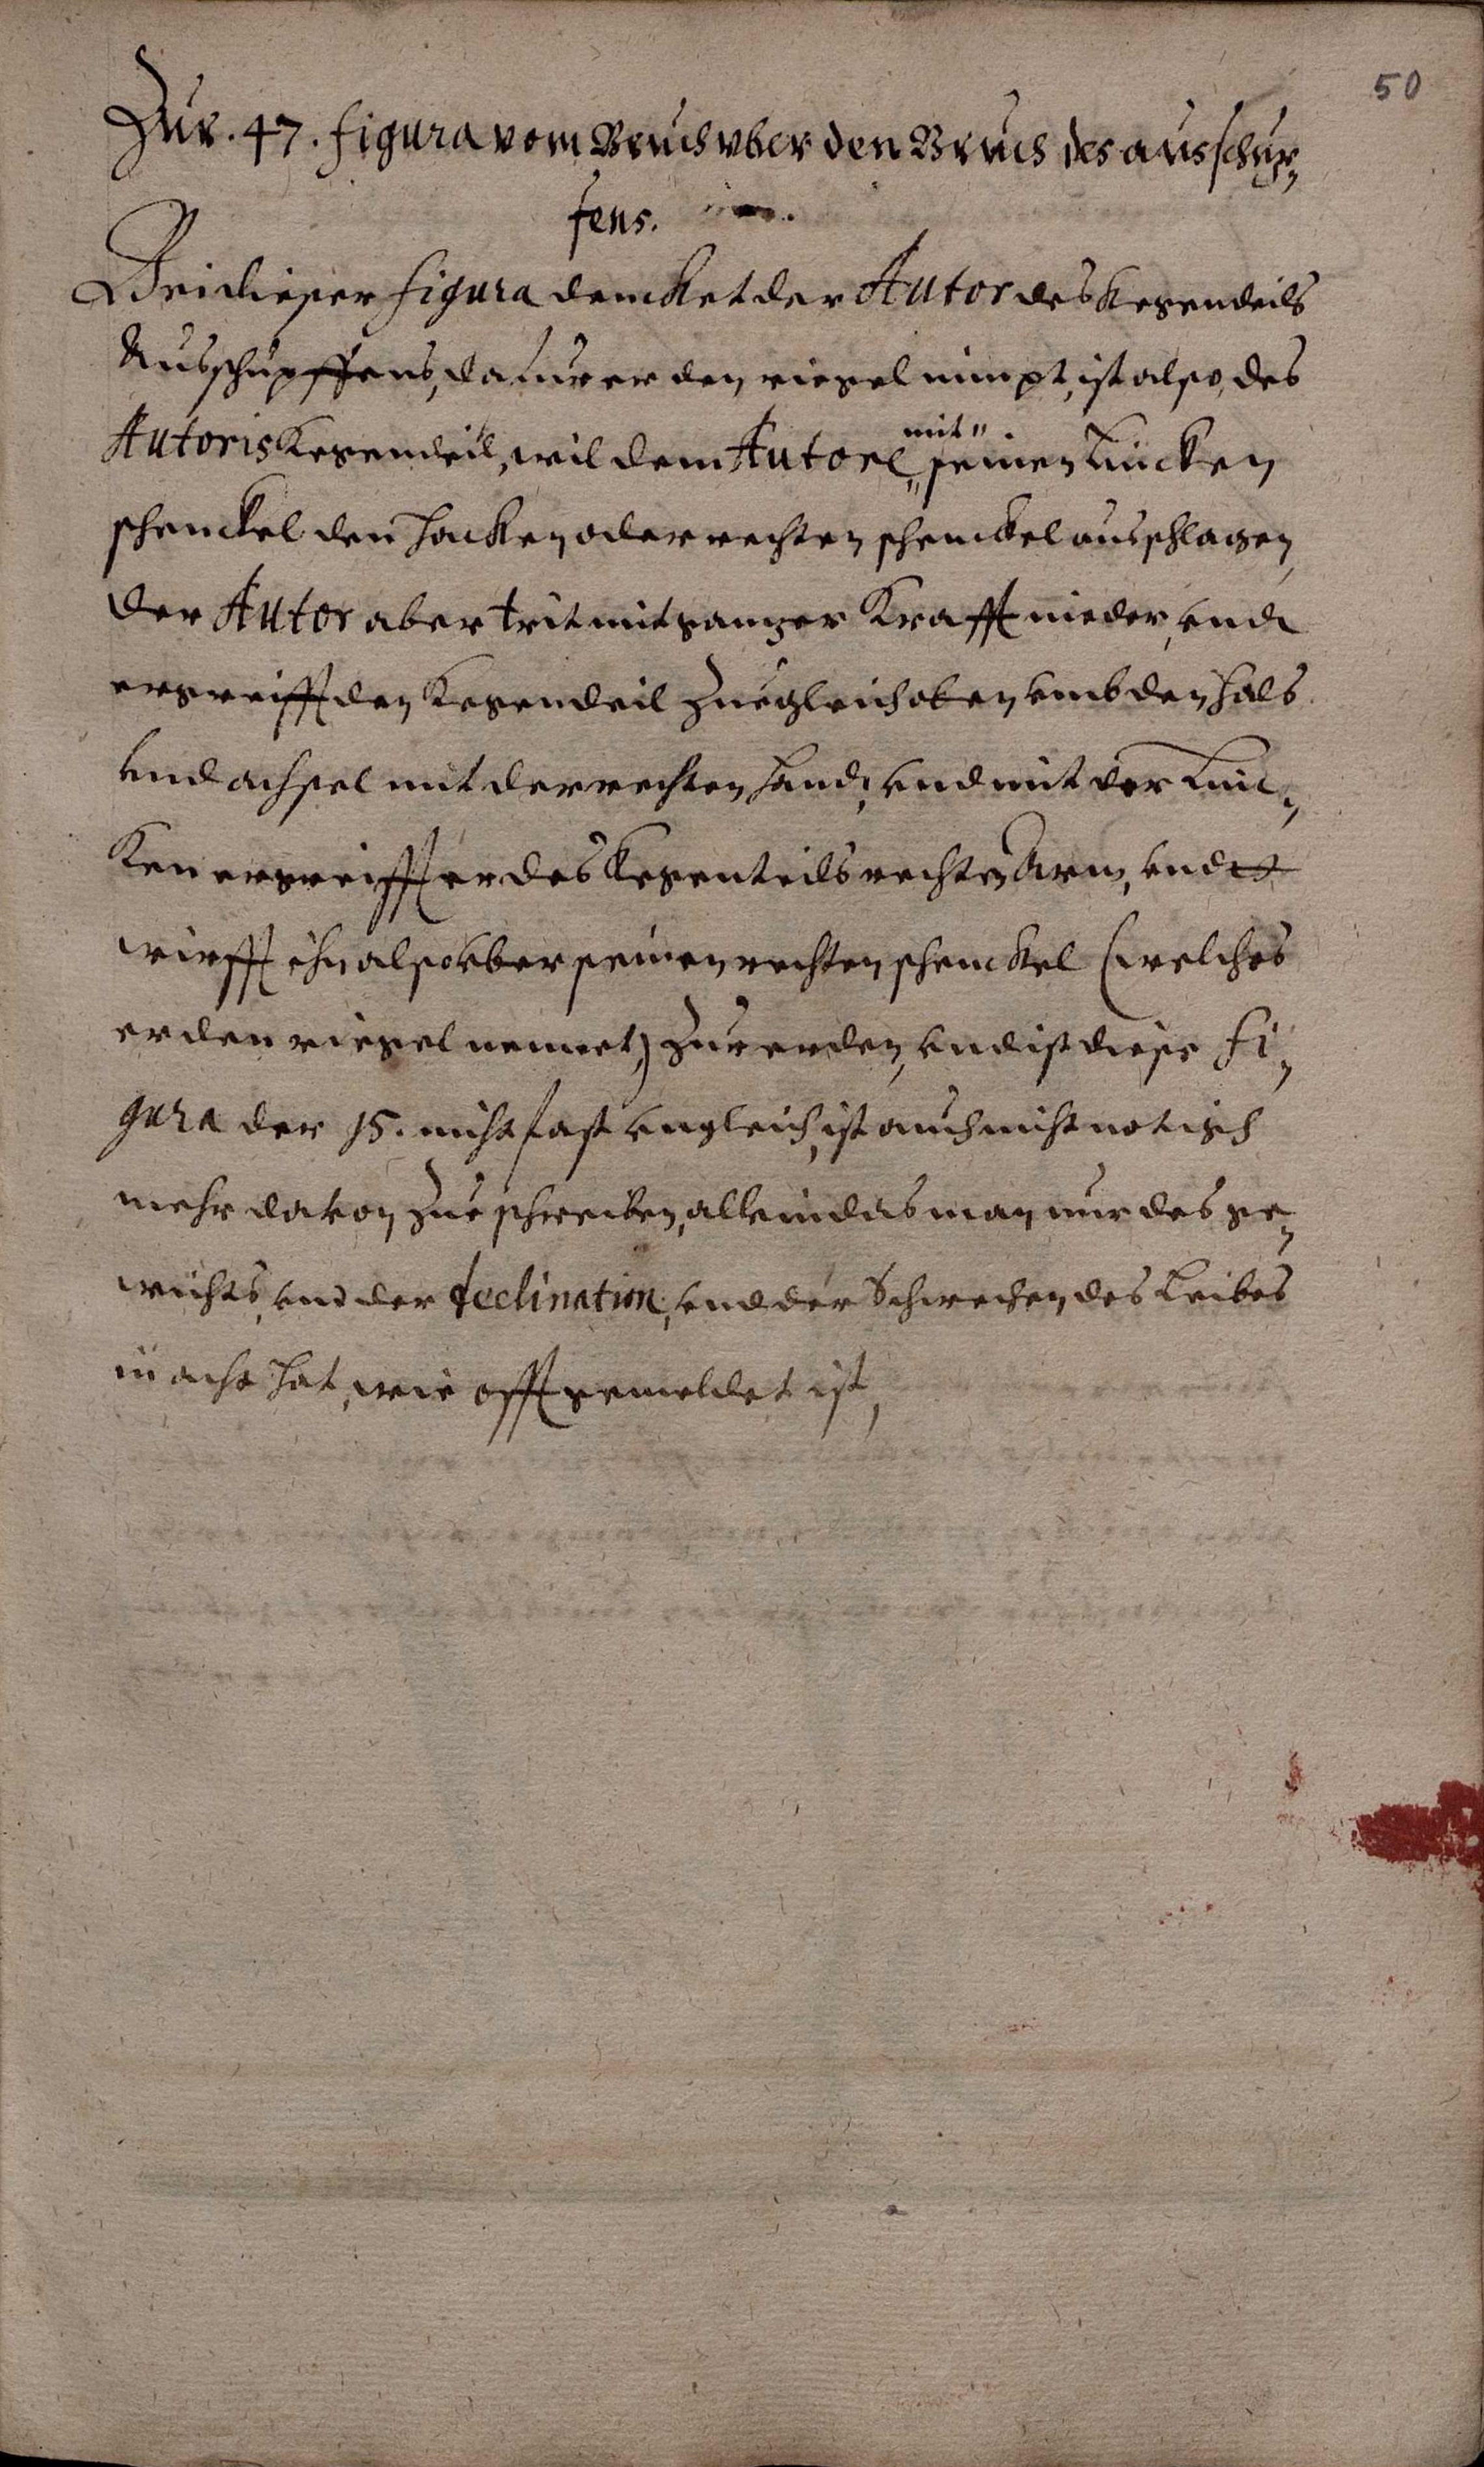 50
Zur. 47. figura vom Bruch vber den Bruch des ausschup„
fens.
Bei dieser figura dencket der Autor des kegendeils
Ausschupffens, dafur er den riegel nimpt, ist also, des
Autoris kegendeil, wil dem Autore „mit„ seinen Lincken
schenckel den hacken oder rechten schenckel ausschlagen
der Autor aber trit mit ganzer Krafft nieder, vnd
ergreifft den kegendeil zugleich oben vmb den hals
vnd achsel mit der rechten hand, vnd mit der Linc„
ken ergreifft er des kegenteils rechten Arm, vnd
wirfft ihn also vber seinen rechten schenckel (welches
er den riegel nennet,) zur erden, vnd ist diese fi„
gura der 15. nicht fast vngleich, ist auch nicht notigh
mehr davon zu schreiben, allein das man nur des ge„
wichts, vnd der declination, vnd der Schwechen des Leibes
in acht hat, wie offt gemeldet ist,